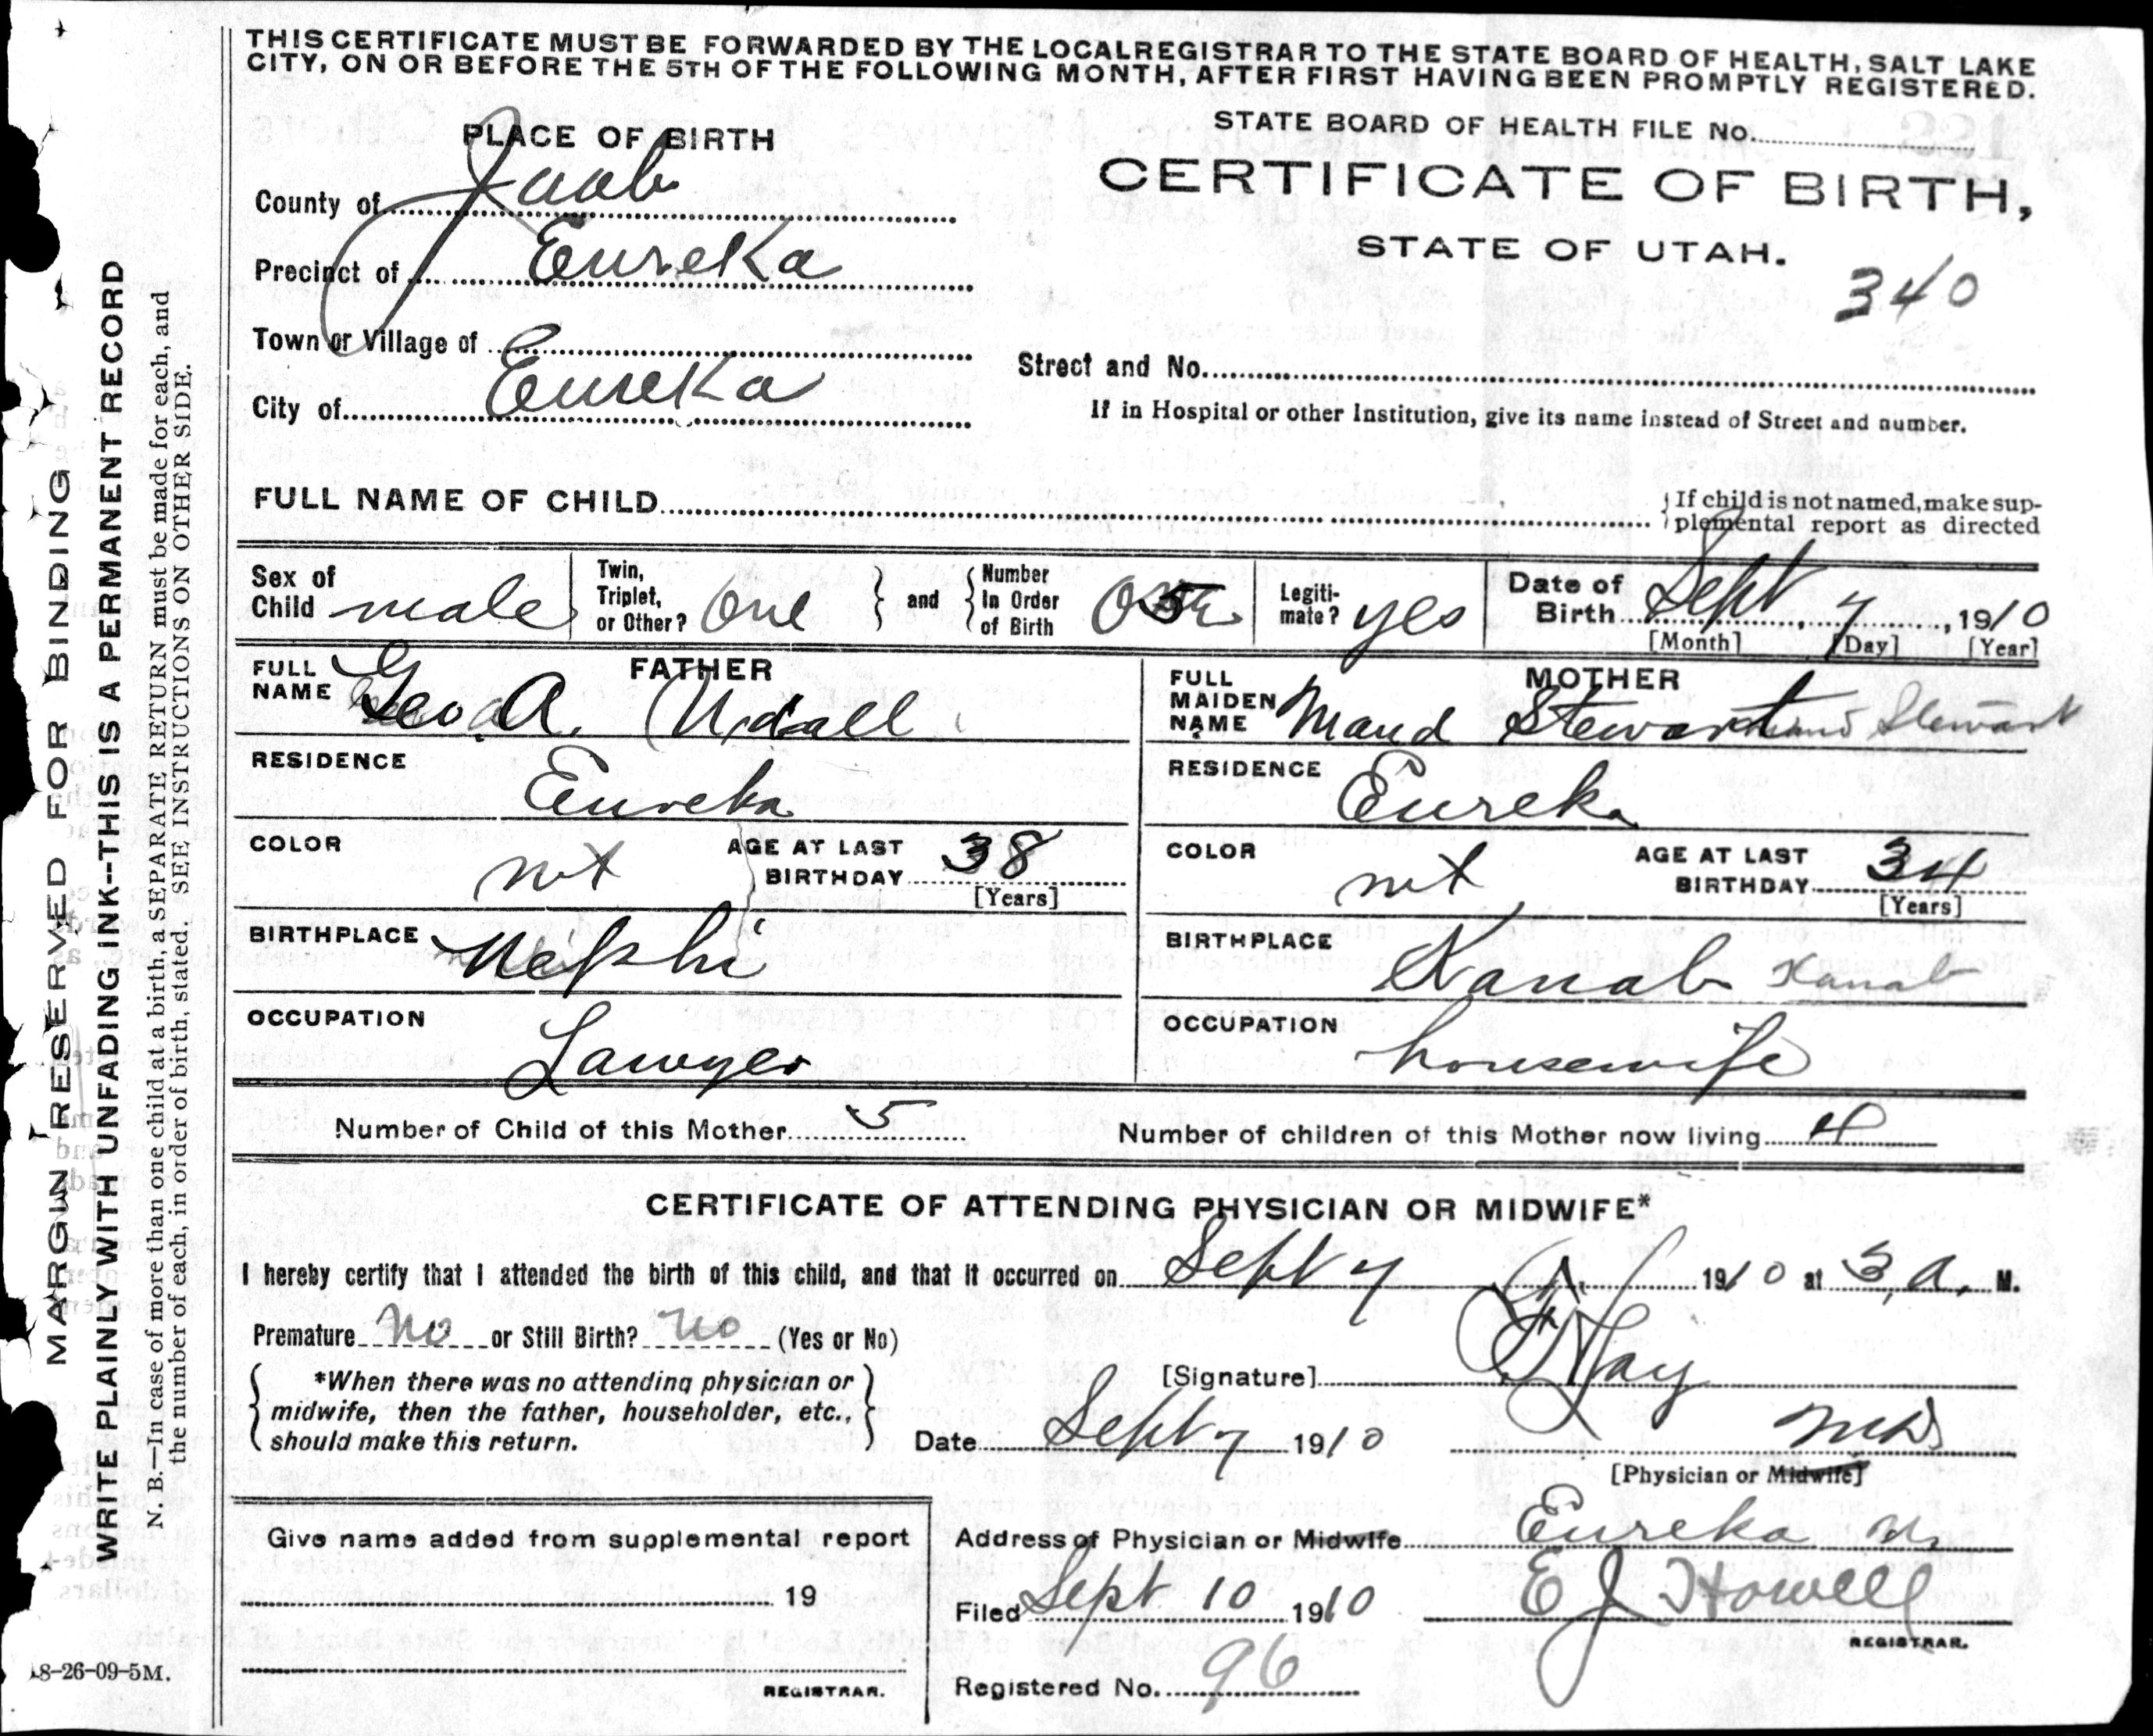 THIS CERTIFICATE MUST BE FORWARDED BY THE LOCAL REGISTRAR TO THE STATE BOARD OF HEALTH, SALT LAKE
CITY, ON OR BEFORE THE 5TH OF THE FOLLOWING MONTH, AFTER FIRST HAVING BEEN PROMPTLY REGISTERED.
PLACE OF BIRTH
County of Juab
Precinct of Eureka
Town or Village of
City of Eureka
STATE BOARD OF HEALTH FILE No.
CERTIFICATE OF BIRTH,
STATE OF UTAH.
340
Street and No.
If in Hospital or other Institution, give its name instead of Street and number.
FULL NAME OF CHILD
If child is not named, make sup-
plemental report as directed
Sex of Child male
Twin, Triplet, or Other? One
and
Number In Order of Birth 5
Legiti-mate? yes
Date of Birth Sept, 7, 1910
[Month] [Day] [Year]
FATHER
FULL NAME Geo A. Udall
RESIDENCE
Eureka
COLOR
AGE AT LAST BIRTHDAY 38
[Years]
BIRTHPLACE Nephi
OCCUPATION
Lawyer
MOTHER
FULL MAIDEN NAME Maud Stewart Stewart
RESIDENCE
Eureka
COLOR
AGE AT LAST BIRTHDAY 34
[Years]
BIRTHPLACE
Kanab Kanab
OCCUPATION
housewife
Number of Child of this Mother 5
Number of children of this Mother now living 4
CERTIFICATE OF ATTENDING PHYSICIAN OR MIDWIFE*
I hereby certify that I attended the birth of this child, and that it occurred on Sept 7 1910 at 3 A. M.
Premature No or Still Birth? no (Yes or No)
*When there was no attending physician or
midwife, then the father, householder, etc.,
should make this return.
[Signature]
Date Sept 7 1910
MD
[Physician or Midwife]
Give name added from supplemental report
19
REGISTRAR.
Address of Physician or Midwife Eureka U.
Filed Sept 10 1910 E J Howell
REGISTRAR.
Registered No. 96
MARGIN RESERVED FOR BINDING
WRITE PLAINLY WITH UNFADING INK--THIS IS A PERMANENT RECORD
N. B.—In case of more than one child at a birth, a SEPARATE RETURN must be made for each, and
the number of each, in order of birth, stated. SEE INSTRUCTIONS ON OTHER SIDE.
8-26-09-5M.